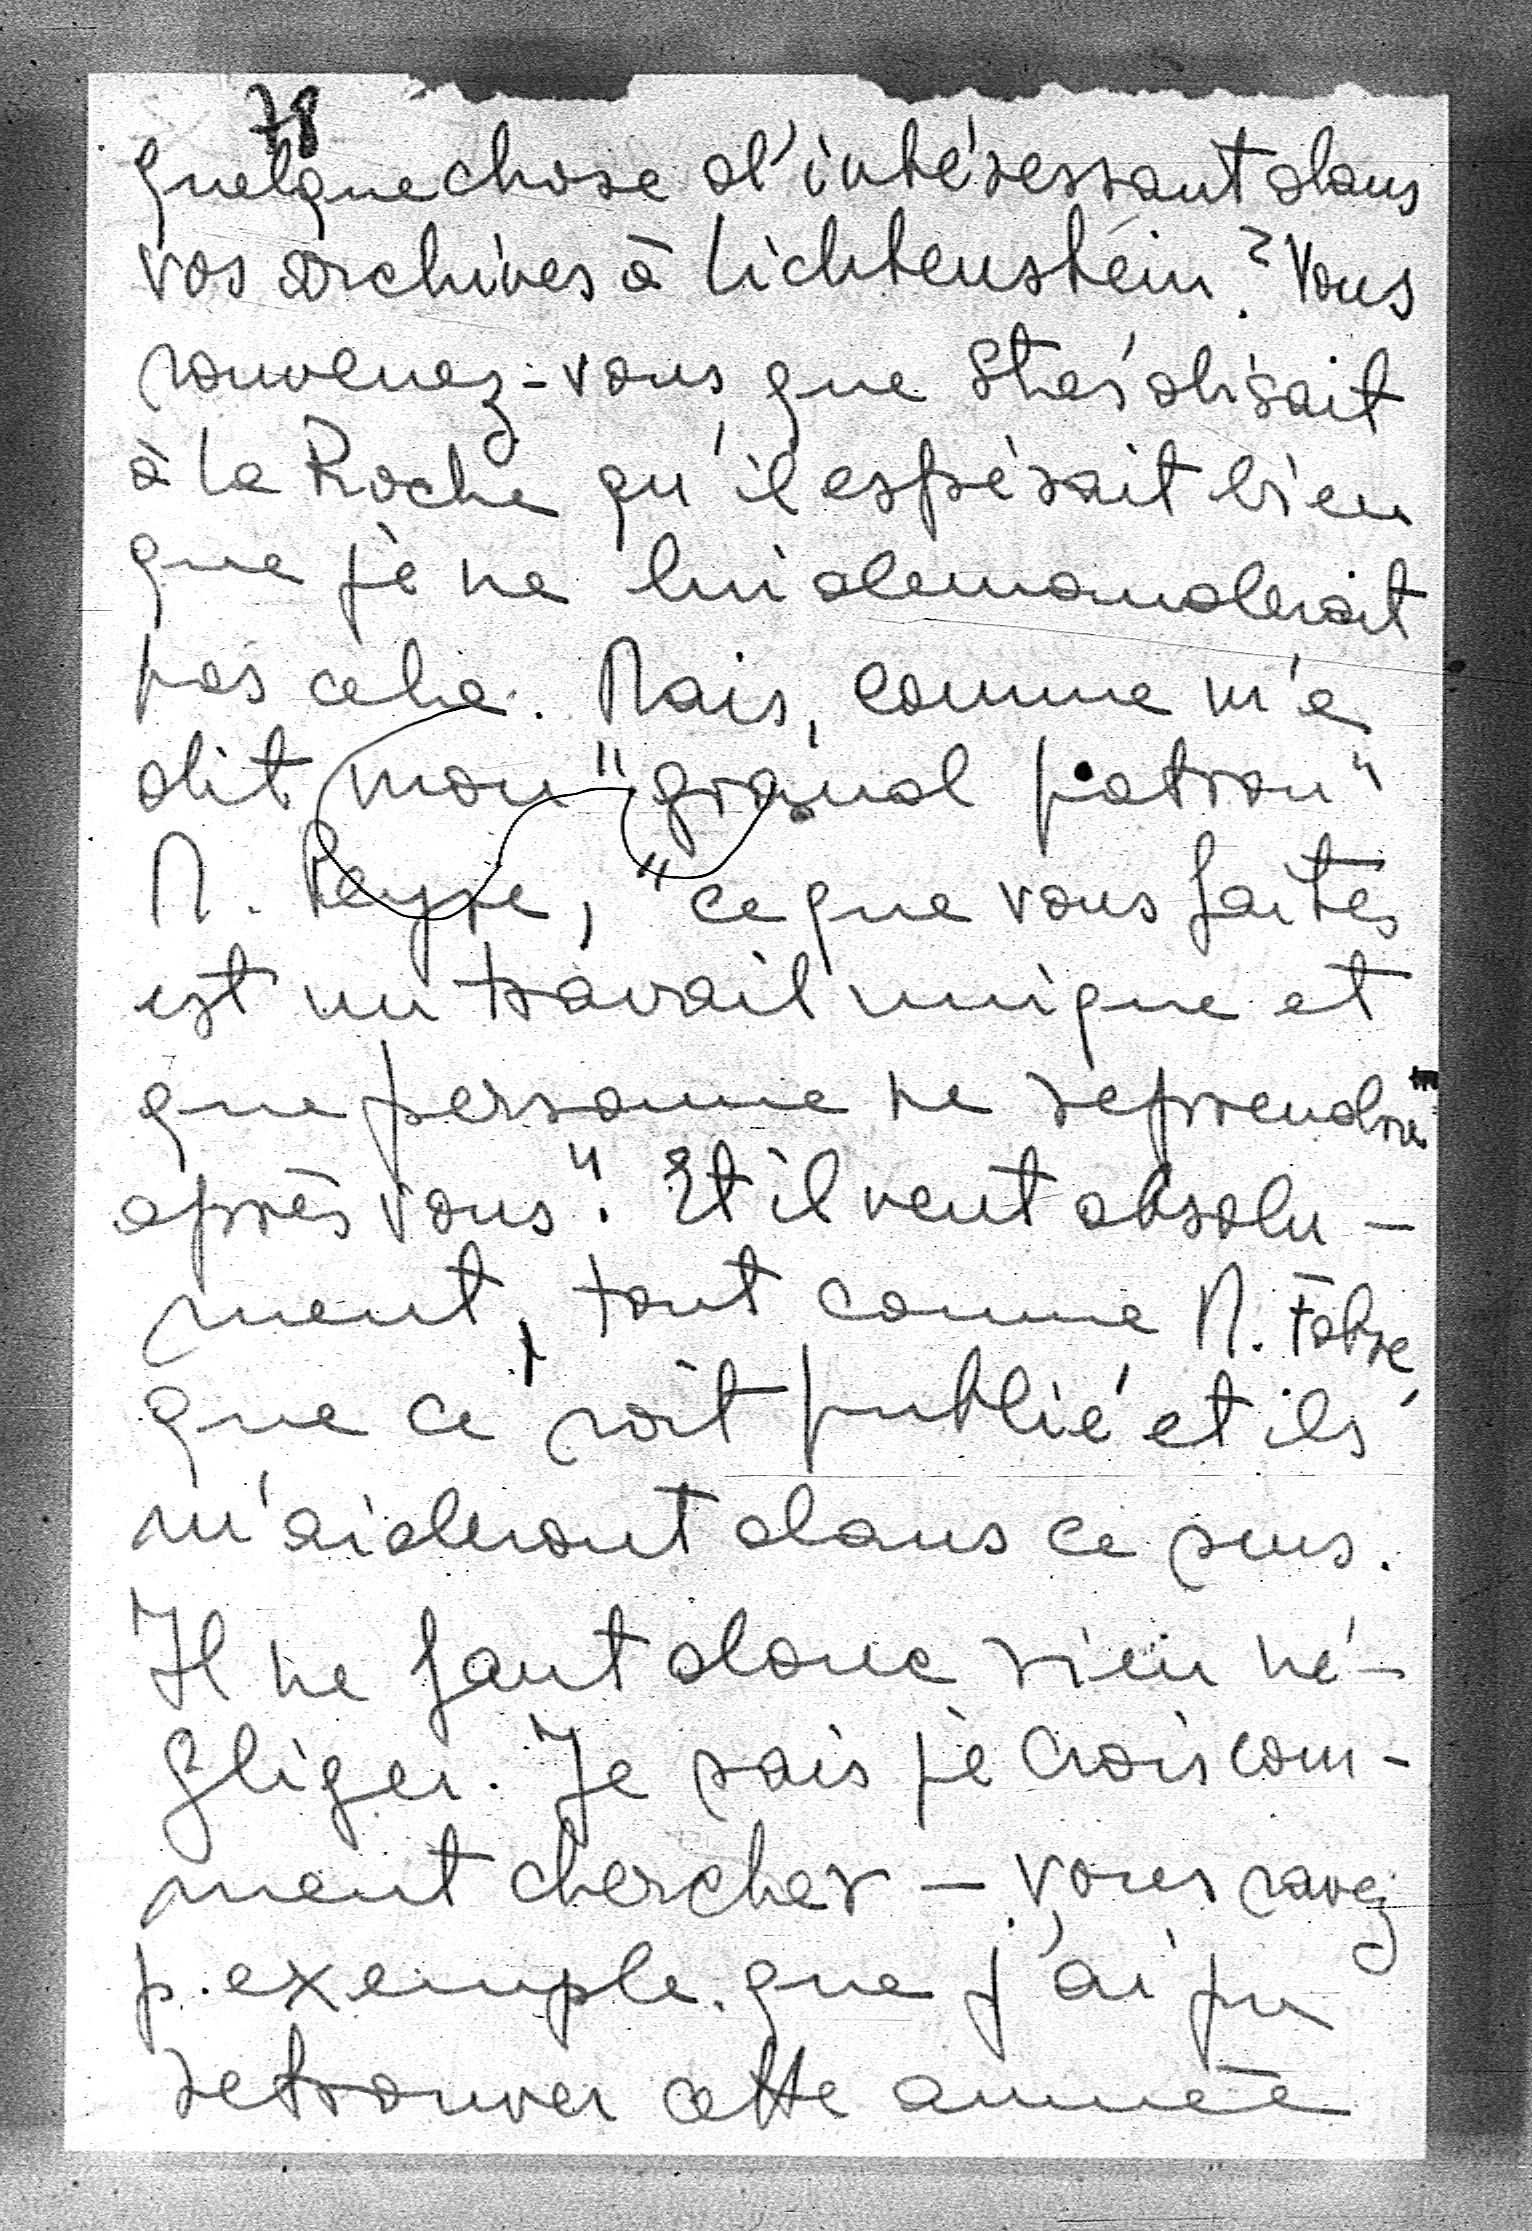 78
quelque chose d'intéressant dans
vos archives à Lichtenstein? Vous
souvenez-vous que disait
à la Roche qu'il espérait bien
que je ne lui demanderait
pas cela. Mais, comme m'a
dit mon "grand patron"
M. Peyre, "ce que vous faites
est un travail unique et
que personne ne reprendra
après vous". Et il veut absolu-
ment, tout comme M. Fabre,
que ce soit publié et ils
m'aideront dans ce sens.
Il ne faut donc rien né-
gliger. Je sais je crois com-
ment chercher – vous savez
p. exemple que j'ai pu
retrouver cette année